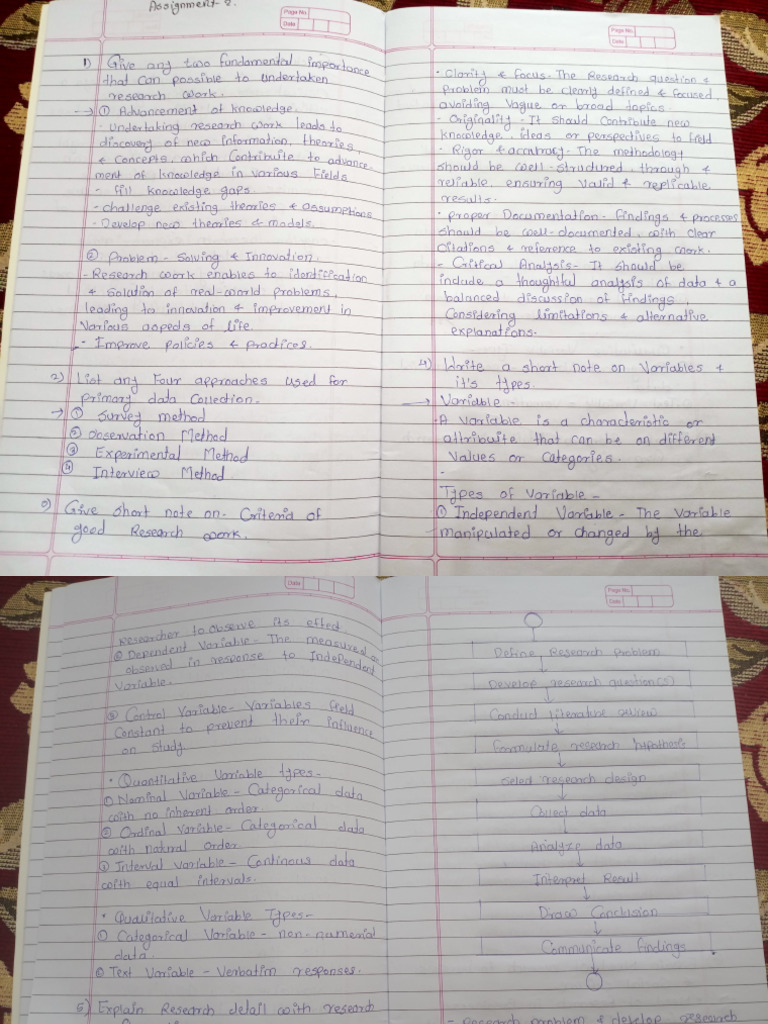 Assignment - 2.
Page No.
Date
1) Give any two fundamental importance
that can possible to undertaken
research work.
→ ① Advancement of knowledge.
- Undertaking research work leads to
discovery of new information, theories,
& concepts, which contribute to advance-
ment of knowledge in various fields
- fill knowledge gaps.
- challenge existing theories & assumptions
- Develop new theories & models.
② Problem - Solving & Innovation.
- Research work enables to identification
& Solution of real-world problems,
leading to innovation & improvement in
various aspects of life.
- Improve policies & practices.
2) List any Four approaches used for
primary data collection.
→ ① Survey method
② Observation Method
③ Experimental Method
④ Interview Method
3) Give short note on - Criteria of
good Research work.
Page No.
Date
• Clarity & focus - The Research question &
problem must be clearly defined & focused,
avoiding vague or broad topics
- Originality - It should contribute new
knowledge, ideas or perspectives to field
• Rigor & accuracy - The methodology
should be well-structured, through &
reliable, ensuring valid & replicable
results.
• proper Documentation - findings & processes
should be well-documented, with clear
citations & reference to existing work.
- Critical Analysis - It should be
include a thoughtful analysis of data & a
balanced discussion of findings,
Considering limitations & alternative
explanations.
4) Write a short note on Variables &
it's types.
→ Variable -
• A variable is a characteristic or
attribuite that can be on different
values or categories.
-
Types of Variable -
① Independent Variable - The variable
manipulated or changed by the
Date
Researcher to observe its effect
② Dependent Variable - The measured or
observed in response to Independent
variable.
③ Control Variable - Variables field
Constant to prevent their influence
on study.
• Quantilative Variable types -
① Nominal Variable - Categorical data
with no inherent order.
② Ordinal Variable - Categorical data
with natural order.
③ Interval variable - Continous data
with equal intervals.
• Qualitative Variable Types -
① Categorical Variable - non-numerial
data.
② Text Variable - Verbatim responses.
5) Explain Research detail with research
Page No.
Date
Define Research problem
Develop research question(s)
Conduct literature review
Formulate research hypothesis
Select research design
Collect data
Analyze data
Interpret Result
Draw Conclusion
Communicate findings
- Research problem & develop research